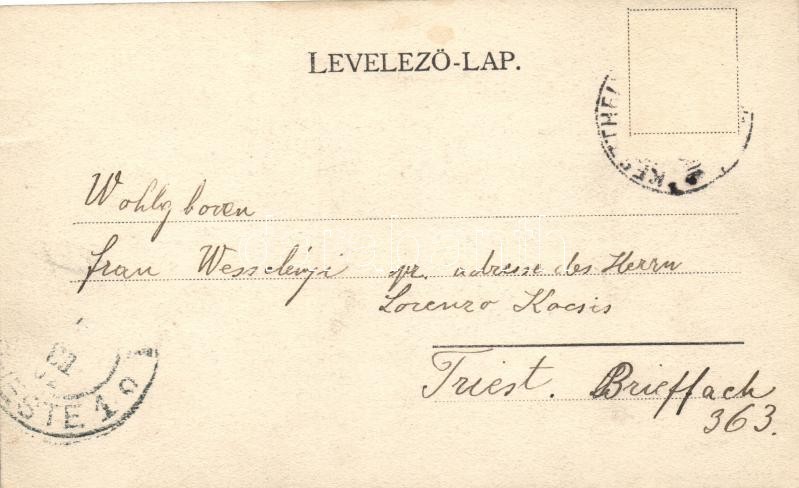 LEVELEZŐ-LAP.
KESZTHELY
Wohlgboren
frau Wesselényi pr. adresse des Herrn
Lorenzo Kocsis
Triest. Brieffach
363.